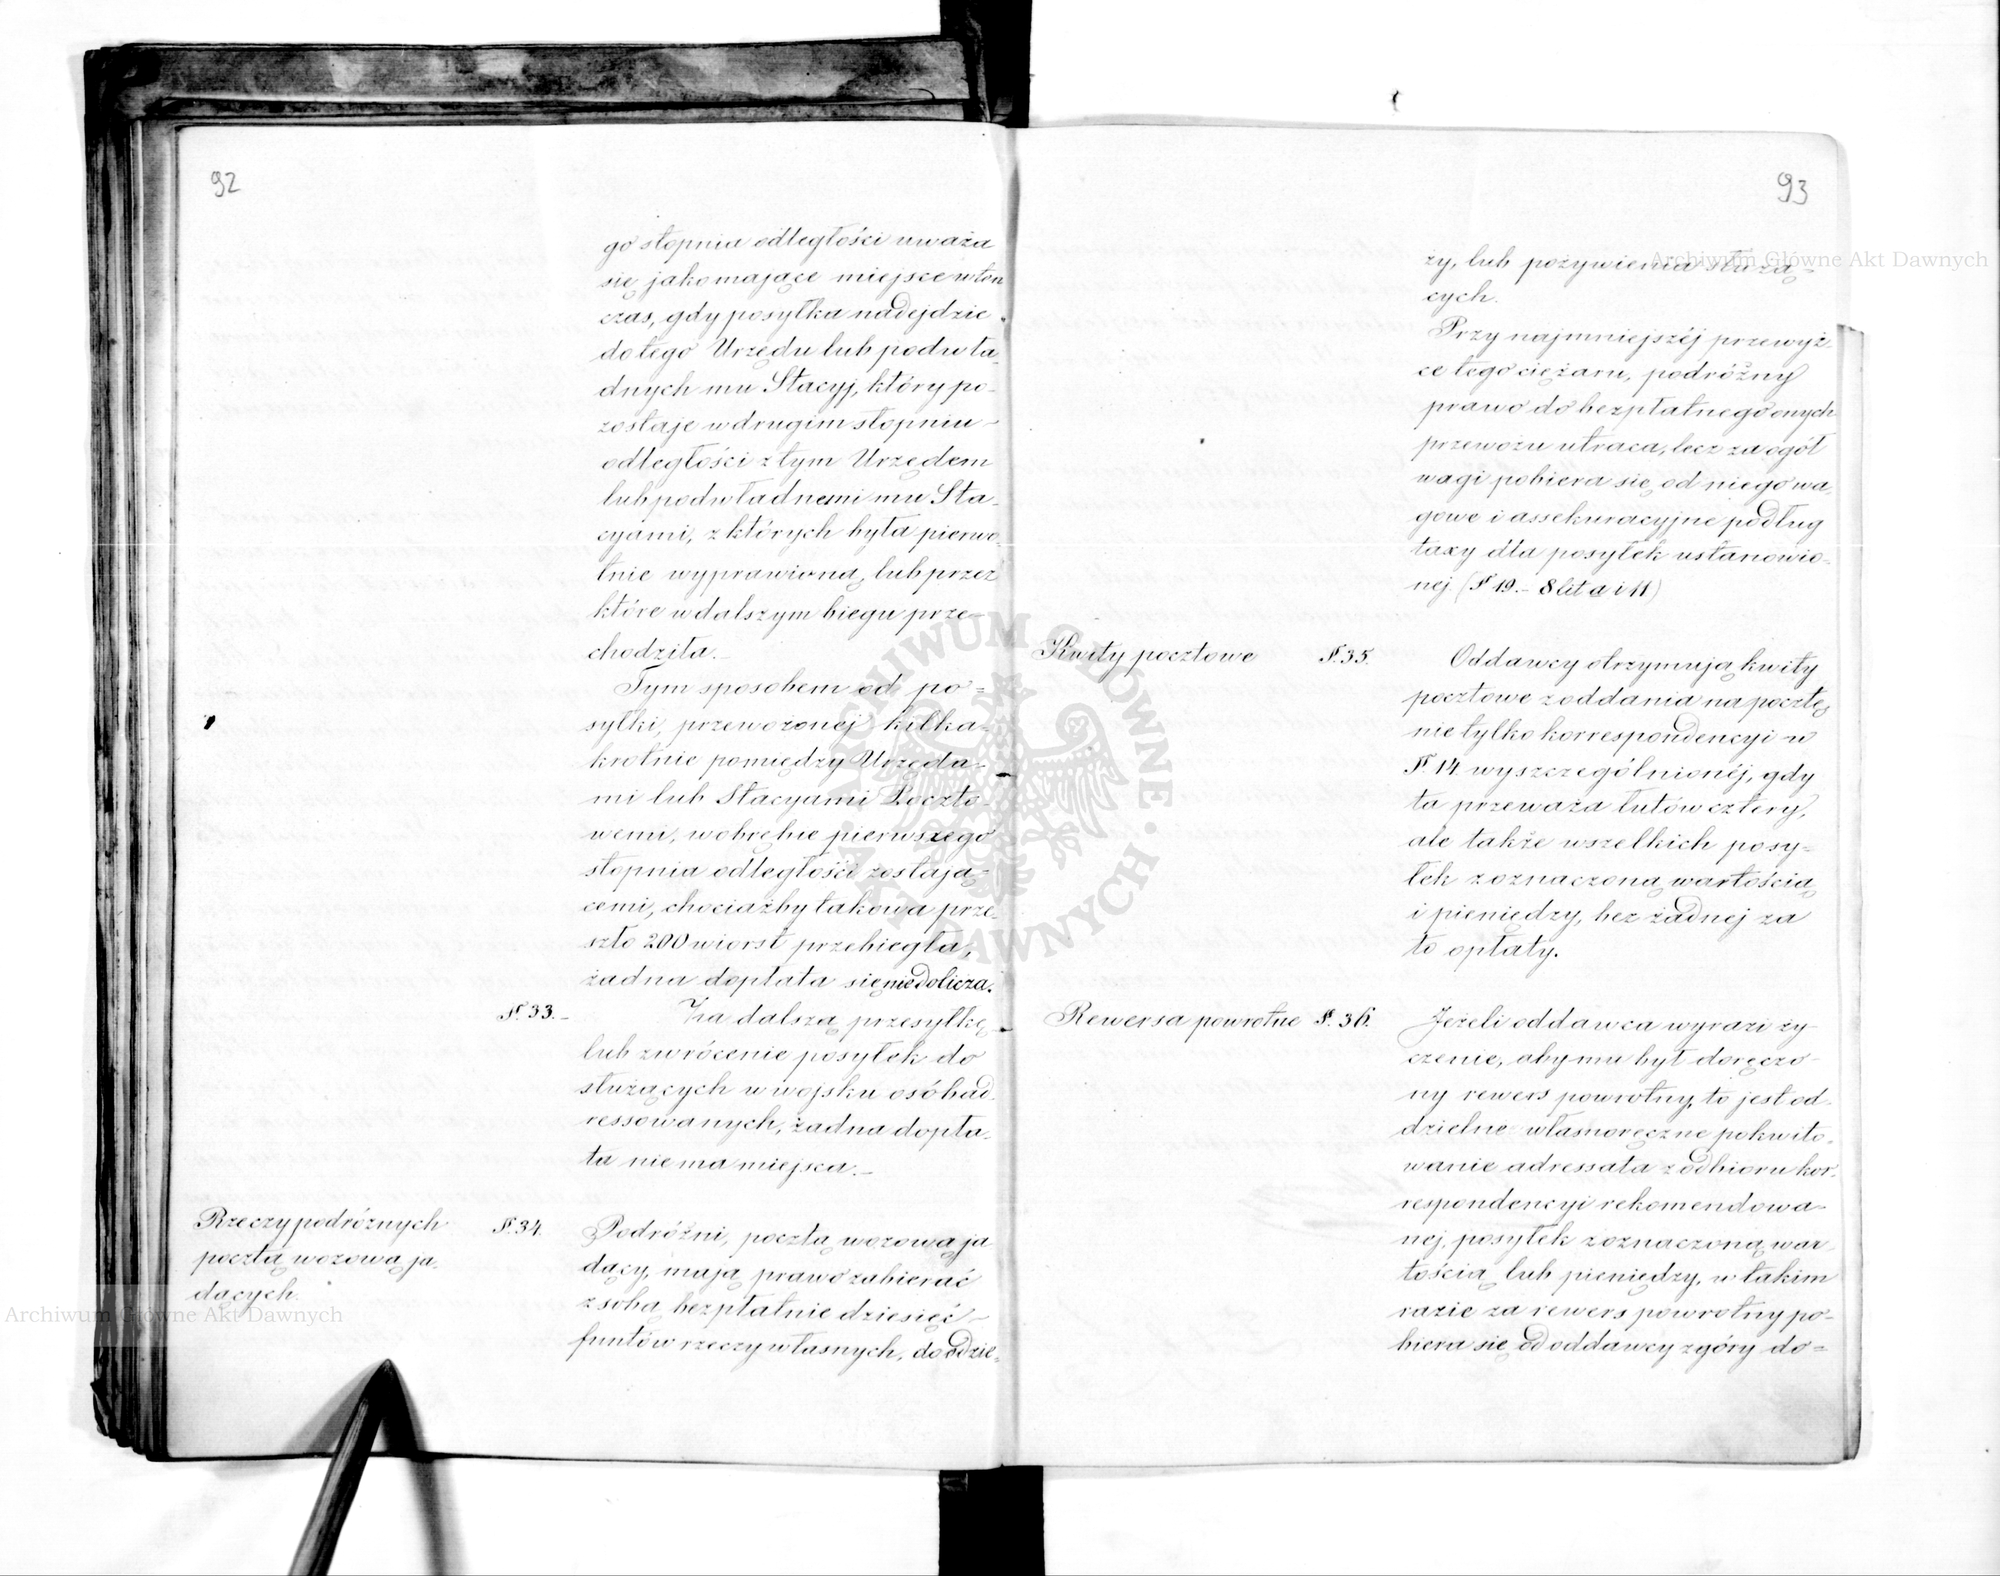 92
go stopnia odległości uważa
się jako mające miejsce w ten
czas, gdy posyłka nadejdzie
do tego Urzędu lub podwła
dnych mu Stacyj, który po-
zostaje w drugim stopniu -
odległości z tym Urzędem
lub podwładnemi mu Sta-
cyami, z których była pierwo-
tnie wyprawioną, lub przez
które w dalszym biegu prze-
chodziła. -
Tym sposobem od po=
syłki, przewożonej kilka-
krotnie pomiędzy Urzęda-
mi lub Stacyami Poczto-
wemi, w obrębie pierwszego
stopnia odległości zostają-
cemi, chociażby takowa prze-
szło 200 wiorst przebiegła,
żadna dopłata się nie dolicza.
§. 33. -
Za dalszą przesyłkę,
lub zwrócenie posyłek do
służących w wojsku osób ad-
ressowanych, żadna dopła-
ta nie ma miejsca. -
Rzeczy podróżnych
pocztą wozową ja-
dących.
§. 34.
Podróżni, pocztą wozową ja
dący, mają prawo zabierać
z sobą bezpłatnie dziesięć -
funtów rzeczy własnych, do odzie-
93
ży, lub pożywienia służą=
cych.
Przy najmniejszéj przewyż-
ce tego ciężaru, podróżny
prawo do bezpłatnego onych
przewozu utraca, lecz za ogół
wagi pobiera się od niego wa-
gowe i assekuracyjne podług
taxy dla posyłek ustanowio-
nej (§ 19. - 8 lit a i 11)
Kwity pocztowe
§. 35.
Oddawcy otrzymują kwity
pocztowe z oddania na pocztę
nie tylko korrespondencyi w
§. 14 wyszczególnionéj, gdy
ta przeważa łutów cztery,
ale także wszelkich posy=
łek z oznaczoną wartością
i pieniędzy, bez żadnej za
to opłaty.
Rewersa powrotne
§. 36.
Jeżeli oddawca wyrazi ży-
czenie, aby mu był doręczo-
ny rewers powrotny, to jest od-
dzielne własnoręczne pokwito-
wanie adressata z odbioru kor-
respondencyi rekomendowa-
nej, posyłek z oznaczoną war-
tością lub pieniędzy, w takim
razie za rewers powrotny po-
biera się od oddawcy z góry do=
Archiwum Główne Akt Dawnych
Archiwum Główne Akt Dawnych
ARCHIWUM GŁÓWNE AKT DAWNYCH